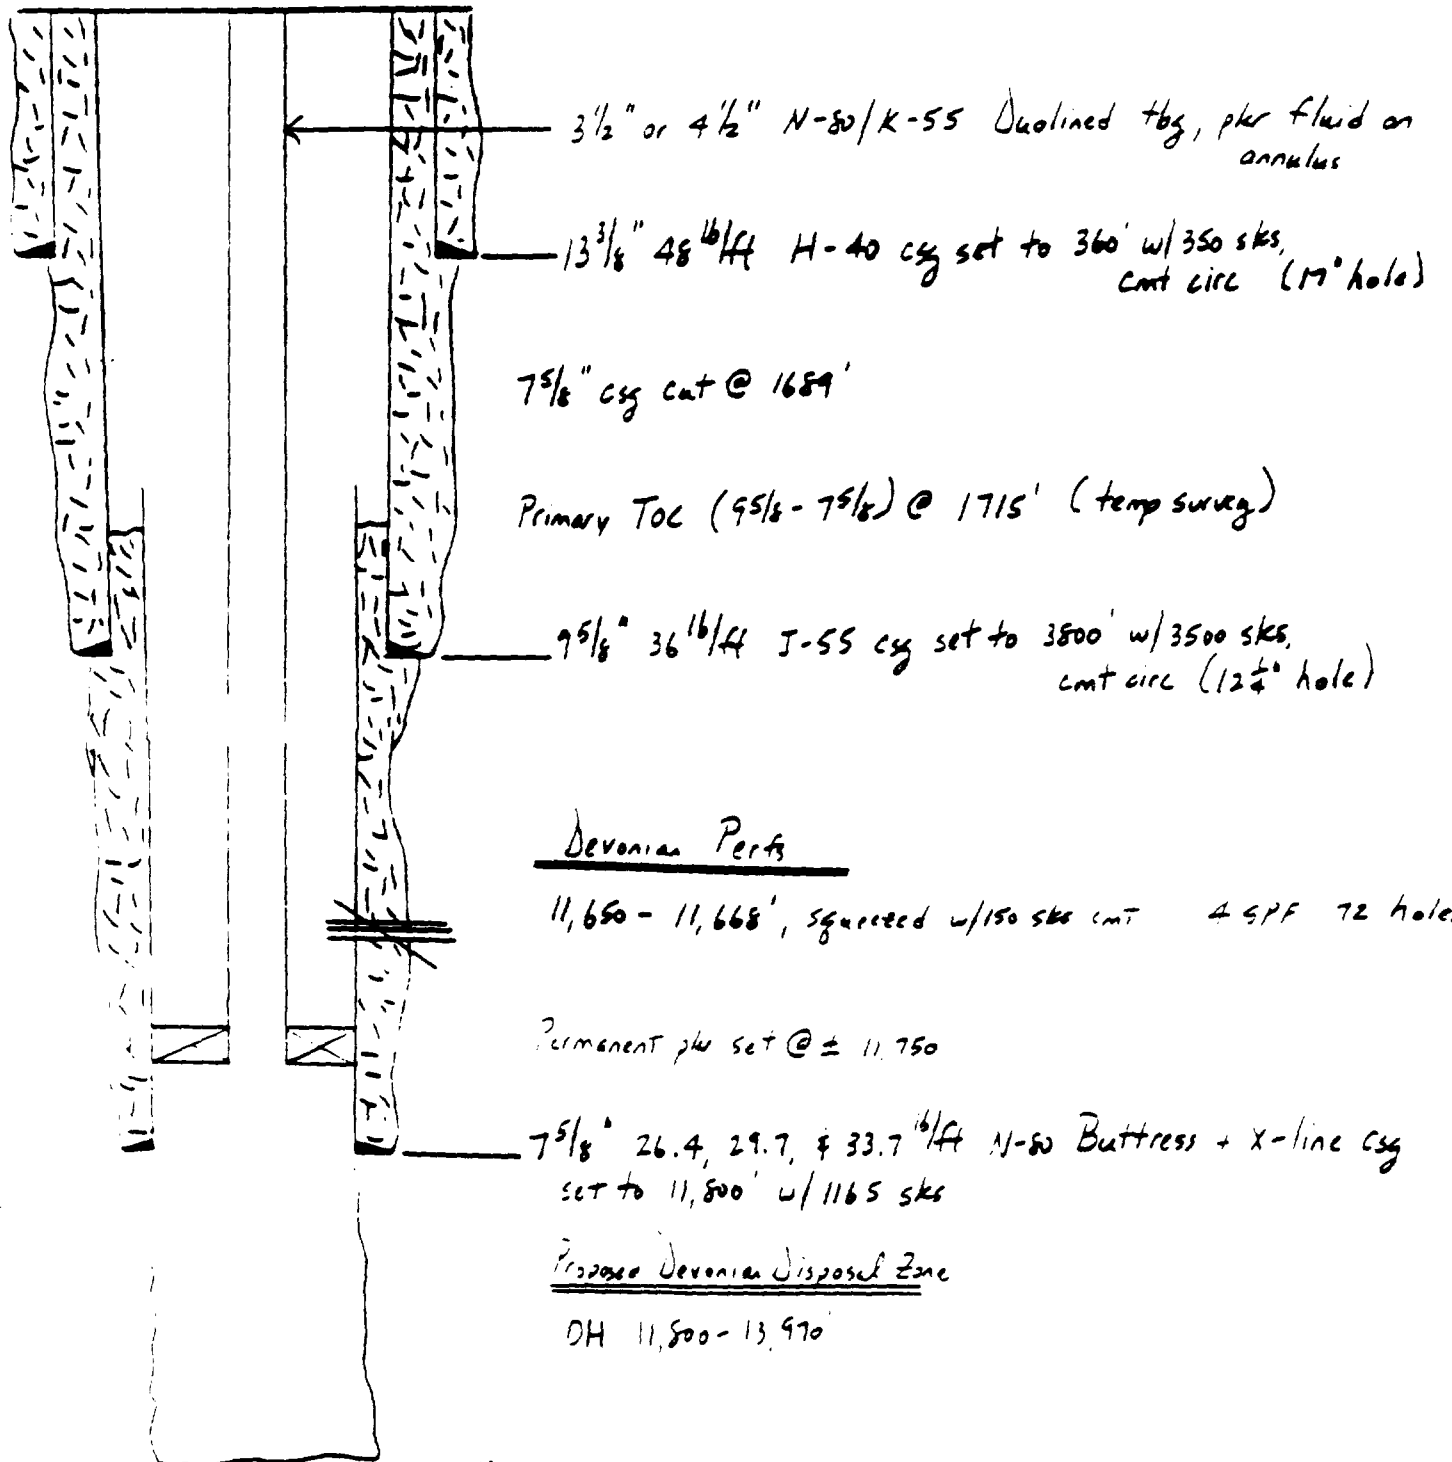 3 1/2" or 4 1/2" N-80/K-55 Duolined tbg, pkr fluid on
annulus
13 3/8" 48 lb/ft H-40 csg set to 360' w/ 350 sks,
cmt circ (17" hole)
7 5/8" csg cut @ 1689'
Primary TOC (9 5/8 - 7 5/8) @ 1715' (temp survey)
9 5/8" 36 lb/ft J-55 csg set to 3800' w/ 3500 sks,
cmt circ (12 1/4" hole)
Devonian Perfs
11,650 - 11,668', squeezed w/150 sks cmt 4 SPF 72 holes
Permanent pkr set @ ± 11,750
7 5/8" 26.4, 29.7, & 33.7 lb/ft N-80 Buttress + X-line csg
set to 11,800' w/ 1165 sks
Proposed Devonian Disposal Zone
OH 11,800 - 13,970'